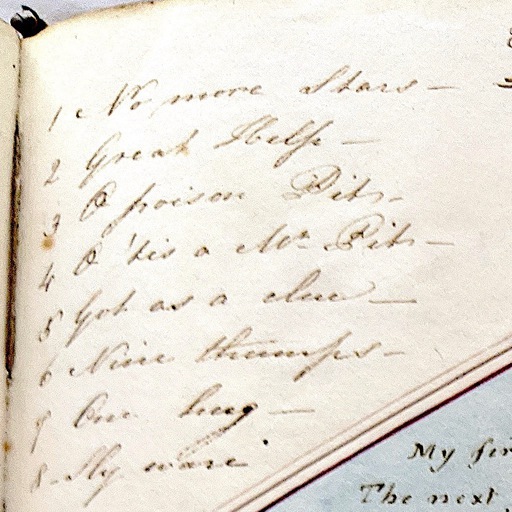 1 No more Stars —
2 Great Help —
3 O poison Pit -
4 O 'tis a Mr Pit —
5 Got as a clue —
6 Nine thumps -
7 One hug —
8 Sly ware
My fir
The next